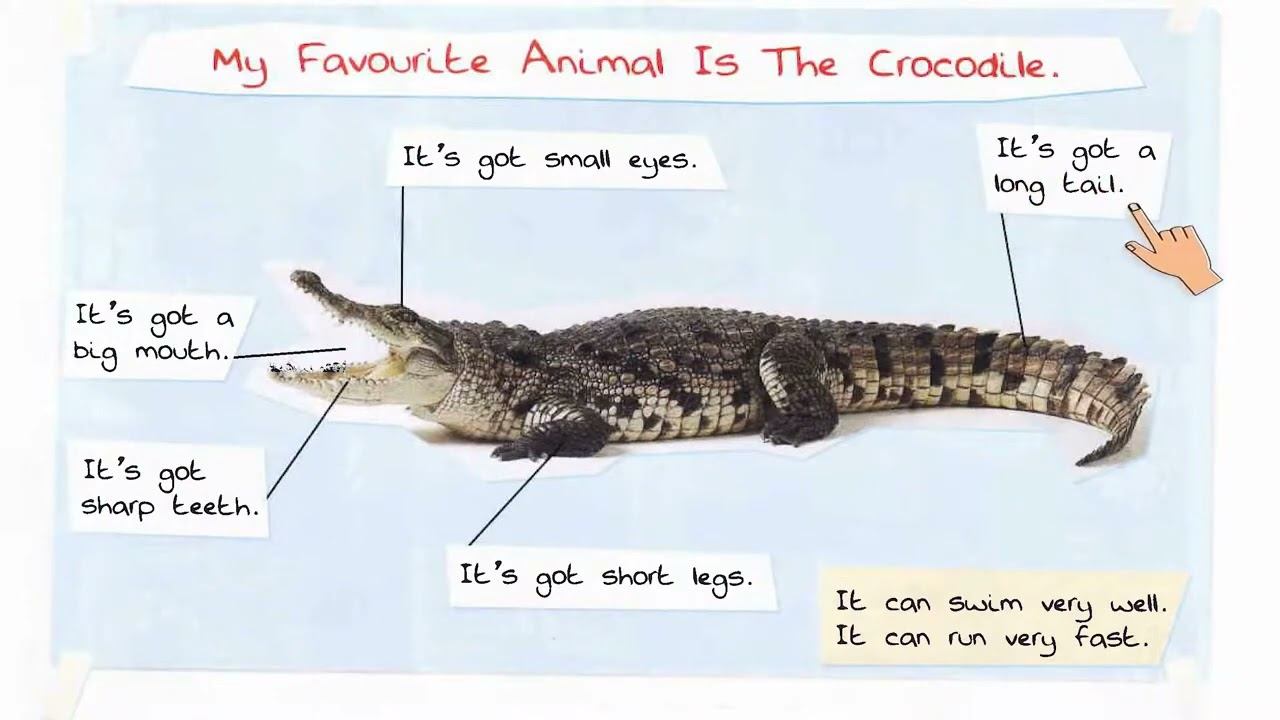 My Favourite Animal Is The Crocodile.
It's got small eyes.
It's got a
long tail.
It's got a
big mouth.
It's got
sharp teeth.
It's got short legs.
It can swim very well.
It can run very fast.